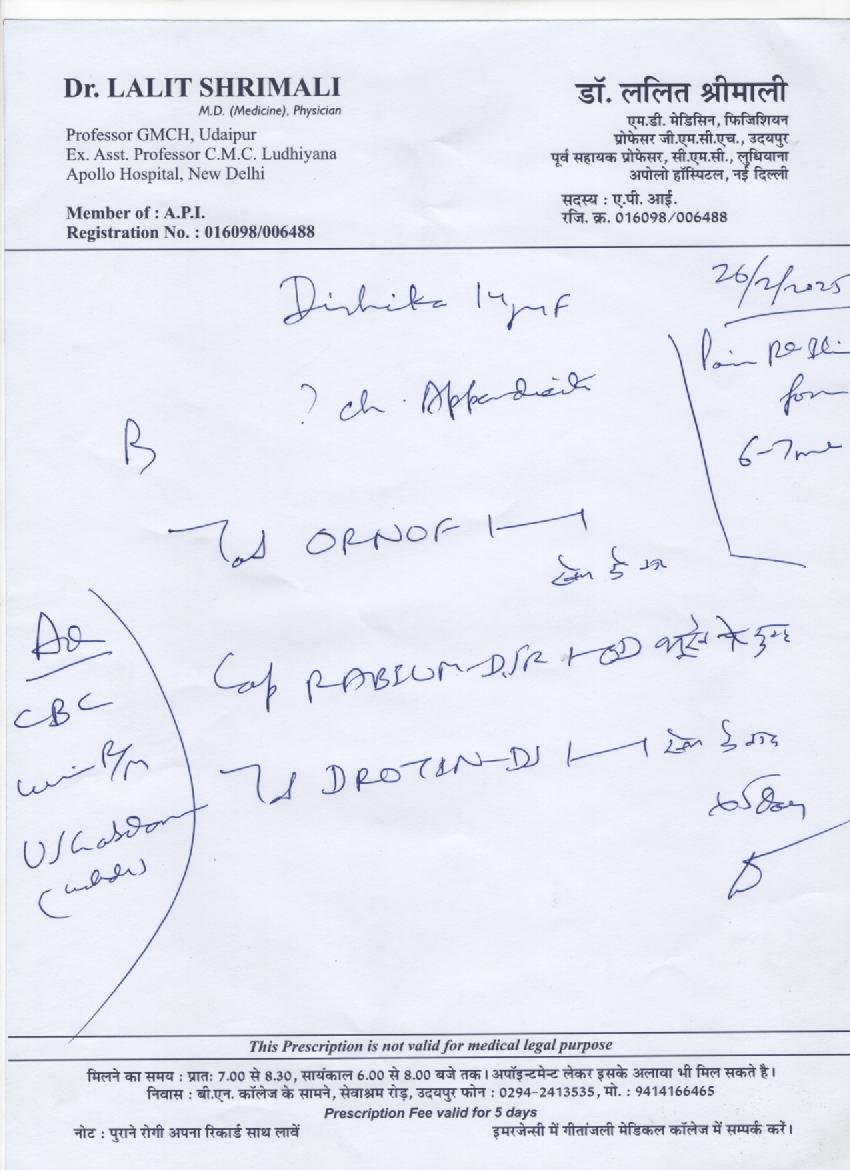 Dr. LALIT SHRIMALI
M.D. (Medicine), Physician
Professor GMCH, Udaipur
Ex. Asst. Professor C.M.C. Ludhiyana
Apollo Hospital, New Delhi
Member of : A.P.I.
Registration No. : 016098/006488
डॉ. ललित श्रीमाली
एम.डी. मेडिसिन, फिजिशियन
प्रोफेसर जी.एम.सी.एच., उदयपुर
पूर्व सहायक प्रोफेसर, सी.एम.सी., लुधियाना
अपोलो हॉस्पिटल, नई दिल्ली
सदस्य : ए.पी. आई.
रजि. क्र. 016098/006488
26/2/2025
Dishika
Pain
for
6-7
? ch. Appendicitis
Tab ORNOF
Cap RABIUM-DSR 1-OD
Tab DROTIN-DS
x5 Day
Ad
CBC
This Prescription is not valid for medical legal purpose
मिलने का समय : प्रातः 7.00 से 8.30, सायंकाल 6.00 से 8.00 बजे तक। अपॉइन्टमेन्ट लेकर इसके अलावा भी मिल सकते है।
निवास : बी.एन. कॉलेज के सामने, सेवाश्रम रोड़, उदयपुर फोन : 0294-2413535, मो. : 9414166465
Prescription Fee valid for 5 days
नोट : पुराने रोगी अपना रिकार्ड साथ लावें
इमरजेन्सी में गीतांजली मेडिकल कॉलेज में सम्पर्क करें।